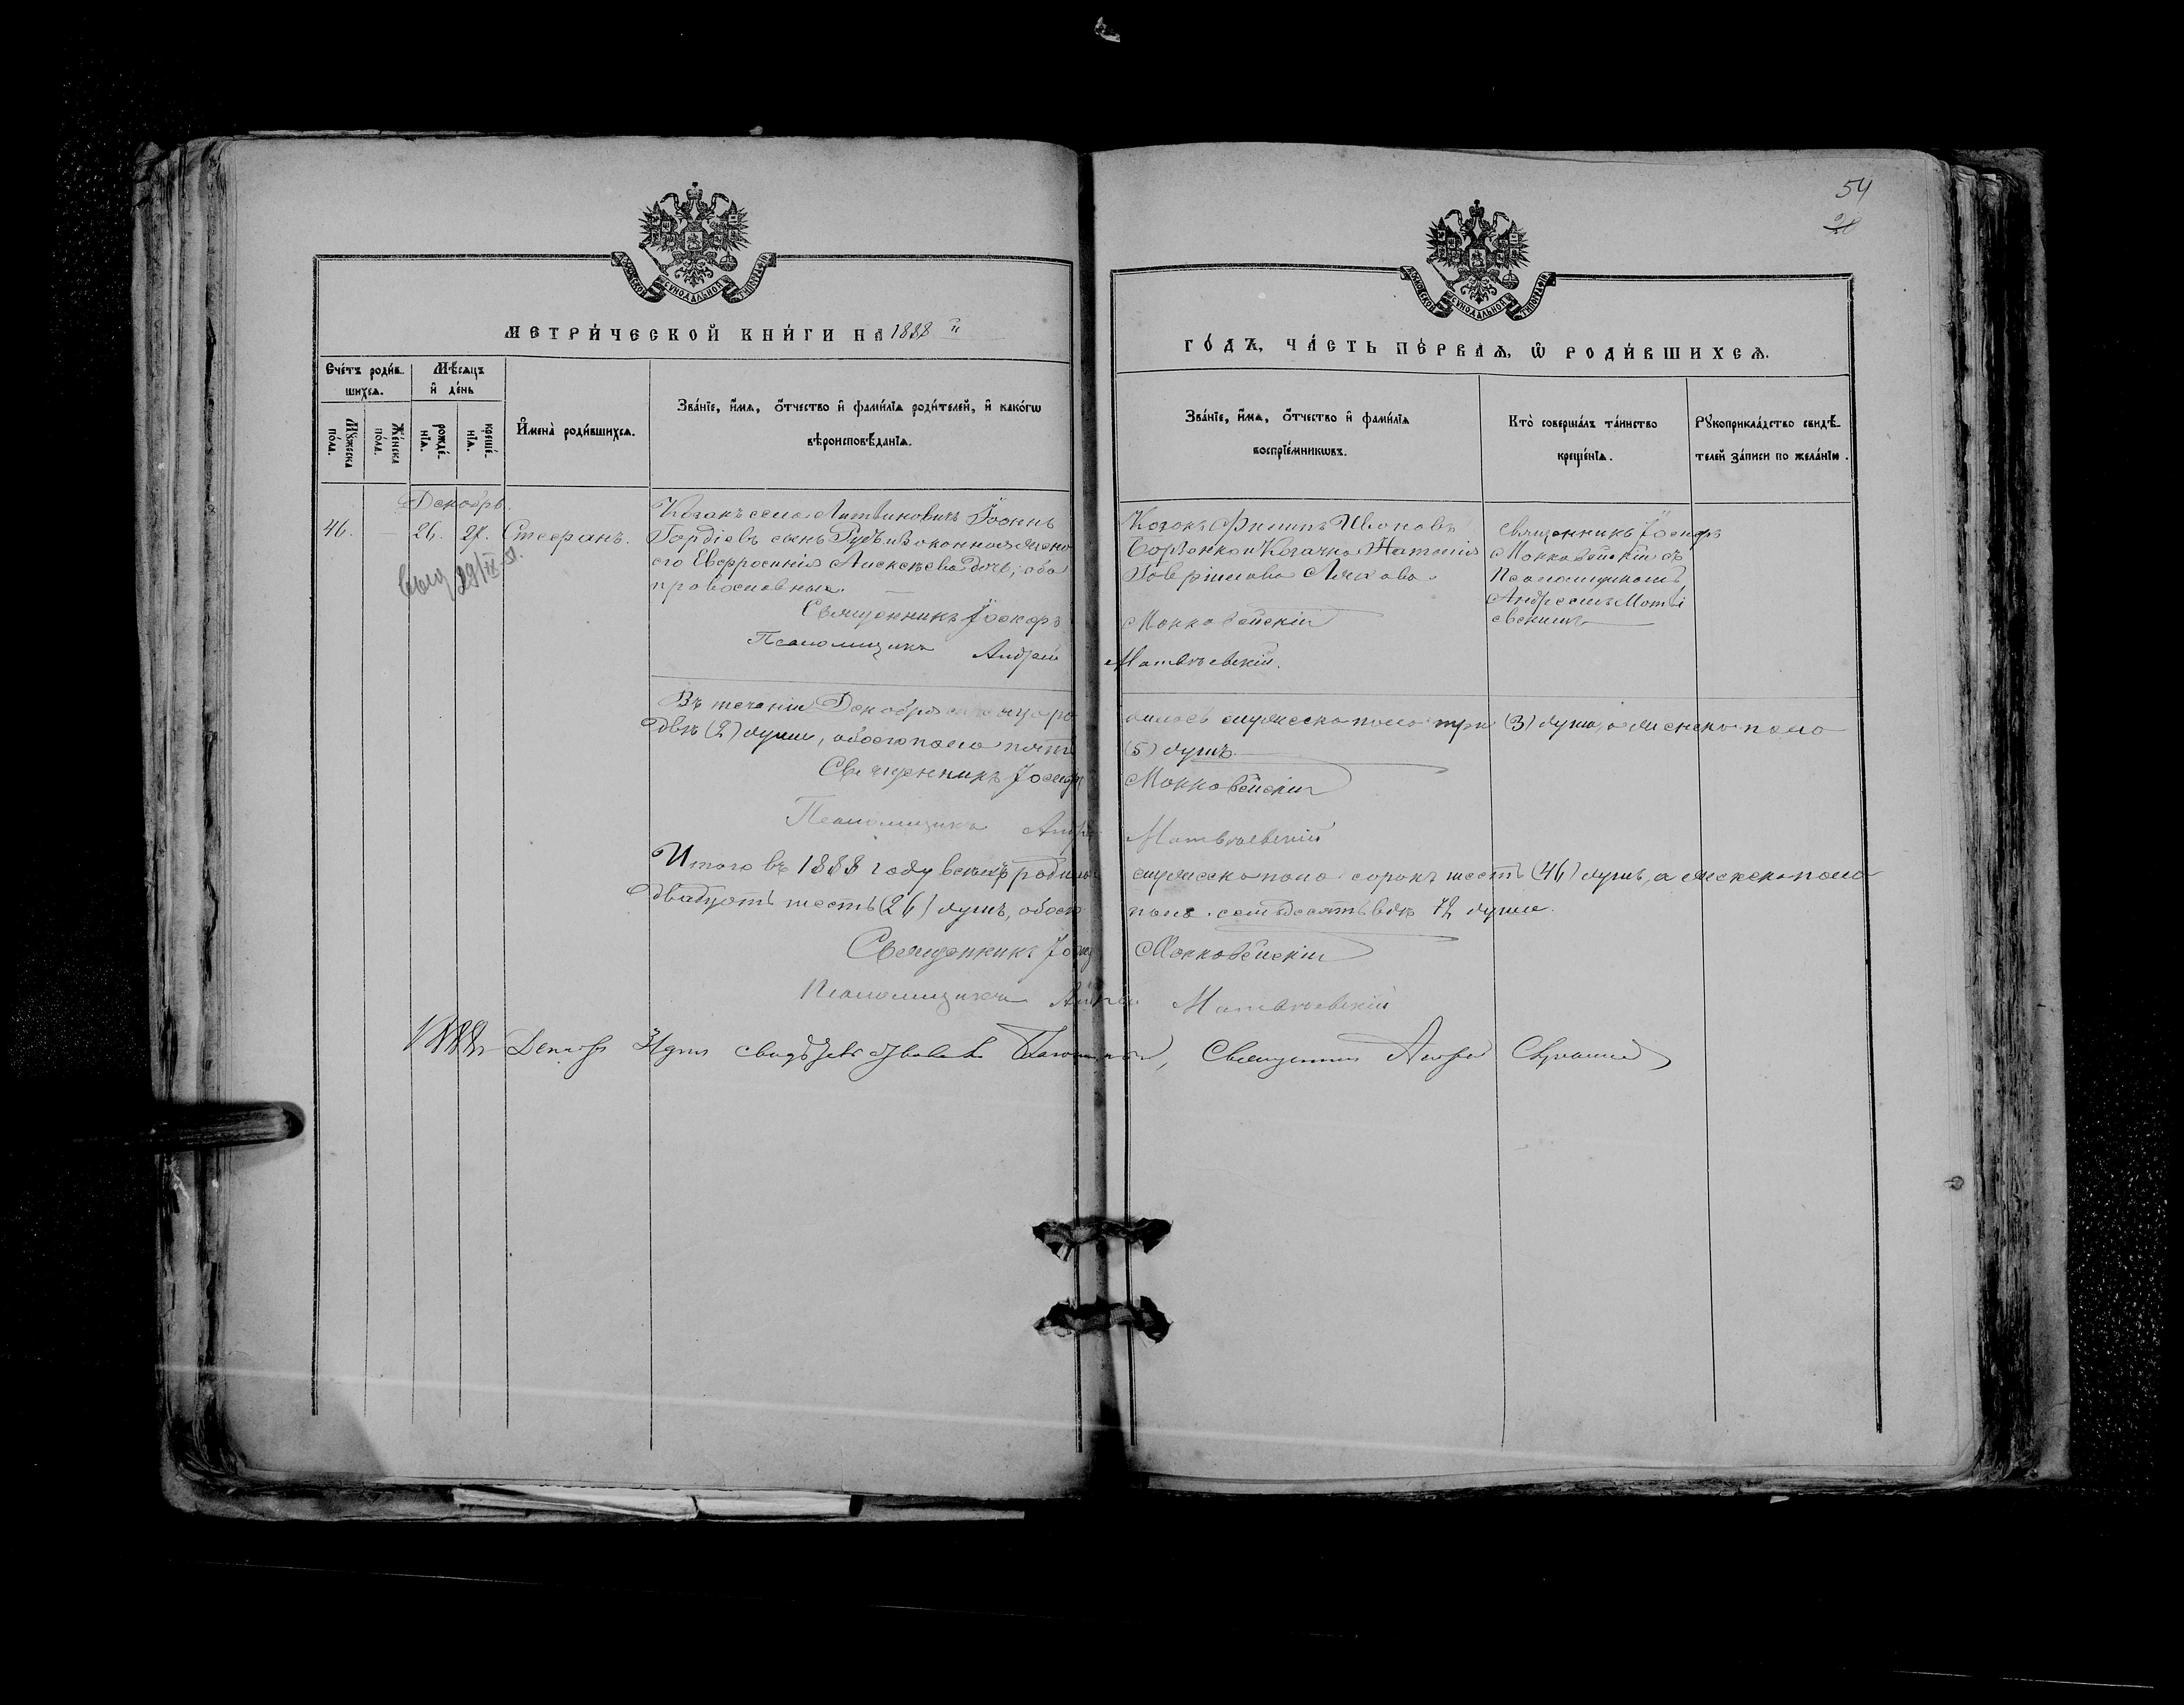 54
28
МОСКОВСКОЙ СѴНОДАЛЬНОЙ ТИПОГРАФІИ
МОСКОВСКОЙ СѴНОДАЛЬНОЙ ТИПОГРАФІИ
МЕТРИ́ЧЕСКОЙ КНИ́ГИ НА 1888 й
ГО́ДЪ, ЧА́СТЬ ПЕ́РВАѦ, Ѽ РОДИ́ВШИХСѦ.
Сче́тъ роди́в-
шихсѧ.
Мꙋ́жеска
по́ла.
Же́нска
по́ла.
Мѣ́сѧцъ
и҆ де́нь
рожде́-
нїѧ.
креще́-
нїѧ.
И҆мена̀ роди́вшихсѧ.
Зва́нїе, и҆́мѧ, ѻ҆́тчество и҆ фами́лїѧ роди́телей, и҆ како́гѡ
вѣроисповѣ́данїѧ.
Зва́нїе, и҆́мѧ, ѻ҆́тчество и҆ фами́лїѧ
воспрїе́мникѡвъ.
Кто̀ соверша́лъ та́инство
креще́нїѧ.
Рꙋкоприкла́дство свидѣ́-
телей за́писи по жела́нїю.
Декабрь.
46.
—
26.
27.
Стефанъ.
29/IX 51.
Козакъ села Литвиновичъ Іоаннъ
Гордіевъ сынъ и законная жена
его Евфросинія Алексѣева дочь; оба
православные.
Козакъ Филипъ Ивановъ
и Козачка Наталія
Гавріилова
Священникъ Іосифъ
Маккавейскій съ
Псаломщикомъ
Андреемъ Матвѣ
евскимъ
Священникъ Іосифъ Маккавейскій
Псаломщикъ Андрей Матвѣевскій.
Въ теченіи Декабря мѣсяца родилось мужеска пола три (3) душы, а женска пола
двѣ (2) душы, обоего пола пять (5) душъ.
Священникъ Іосифъ Маккавейскій
Псаломщикъ Андрей Матвѣевскій
Итого въ 1888 году всѣхъ родилось мужеска пола сорокъ шесть (46) душъ, а женска пола
двадцать шесть (26) душъ, обоего пола семьдесятъ двѣ 72 душы.
Священникъ Іосифъ Маккавейскій
Псаломщикъ Андрей Матвѣевскій
1888 г. Декабря 31 дня свидѣтельствовалъ Священникъ